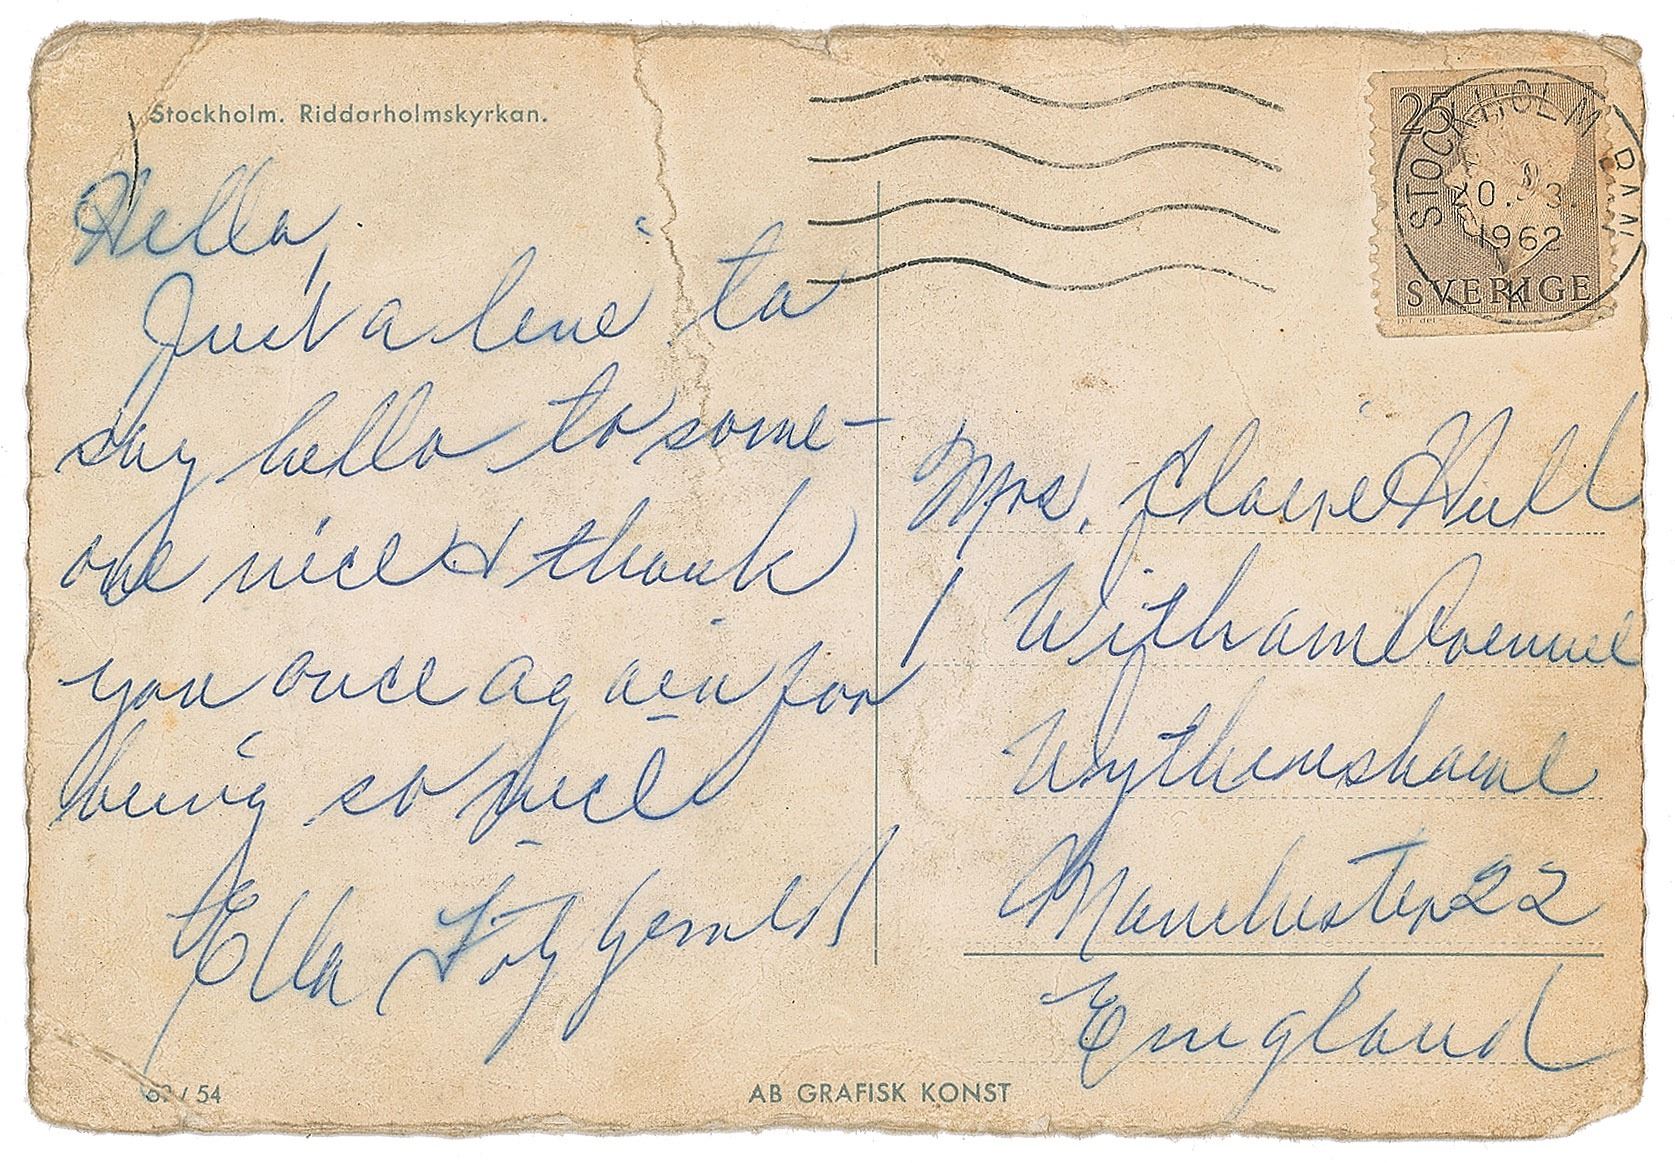 Stockholm. Riddarholmskyrkan.
Hello,
Just a line to
say hello to some-
one nice & thank
you once again for
being so nice
Ella Fitzgerald
25
STOCKHOLM BAN
20. 3.
1962
K
SVERIGE
Mrs. Claire Hull
1 Witham Avenue
Wythenshawe
Manchester 22
England
/ 54
AB GRAFISK KONST